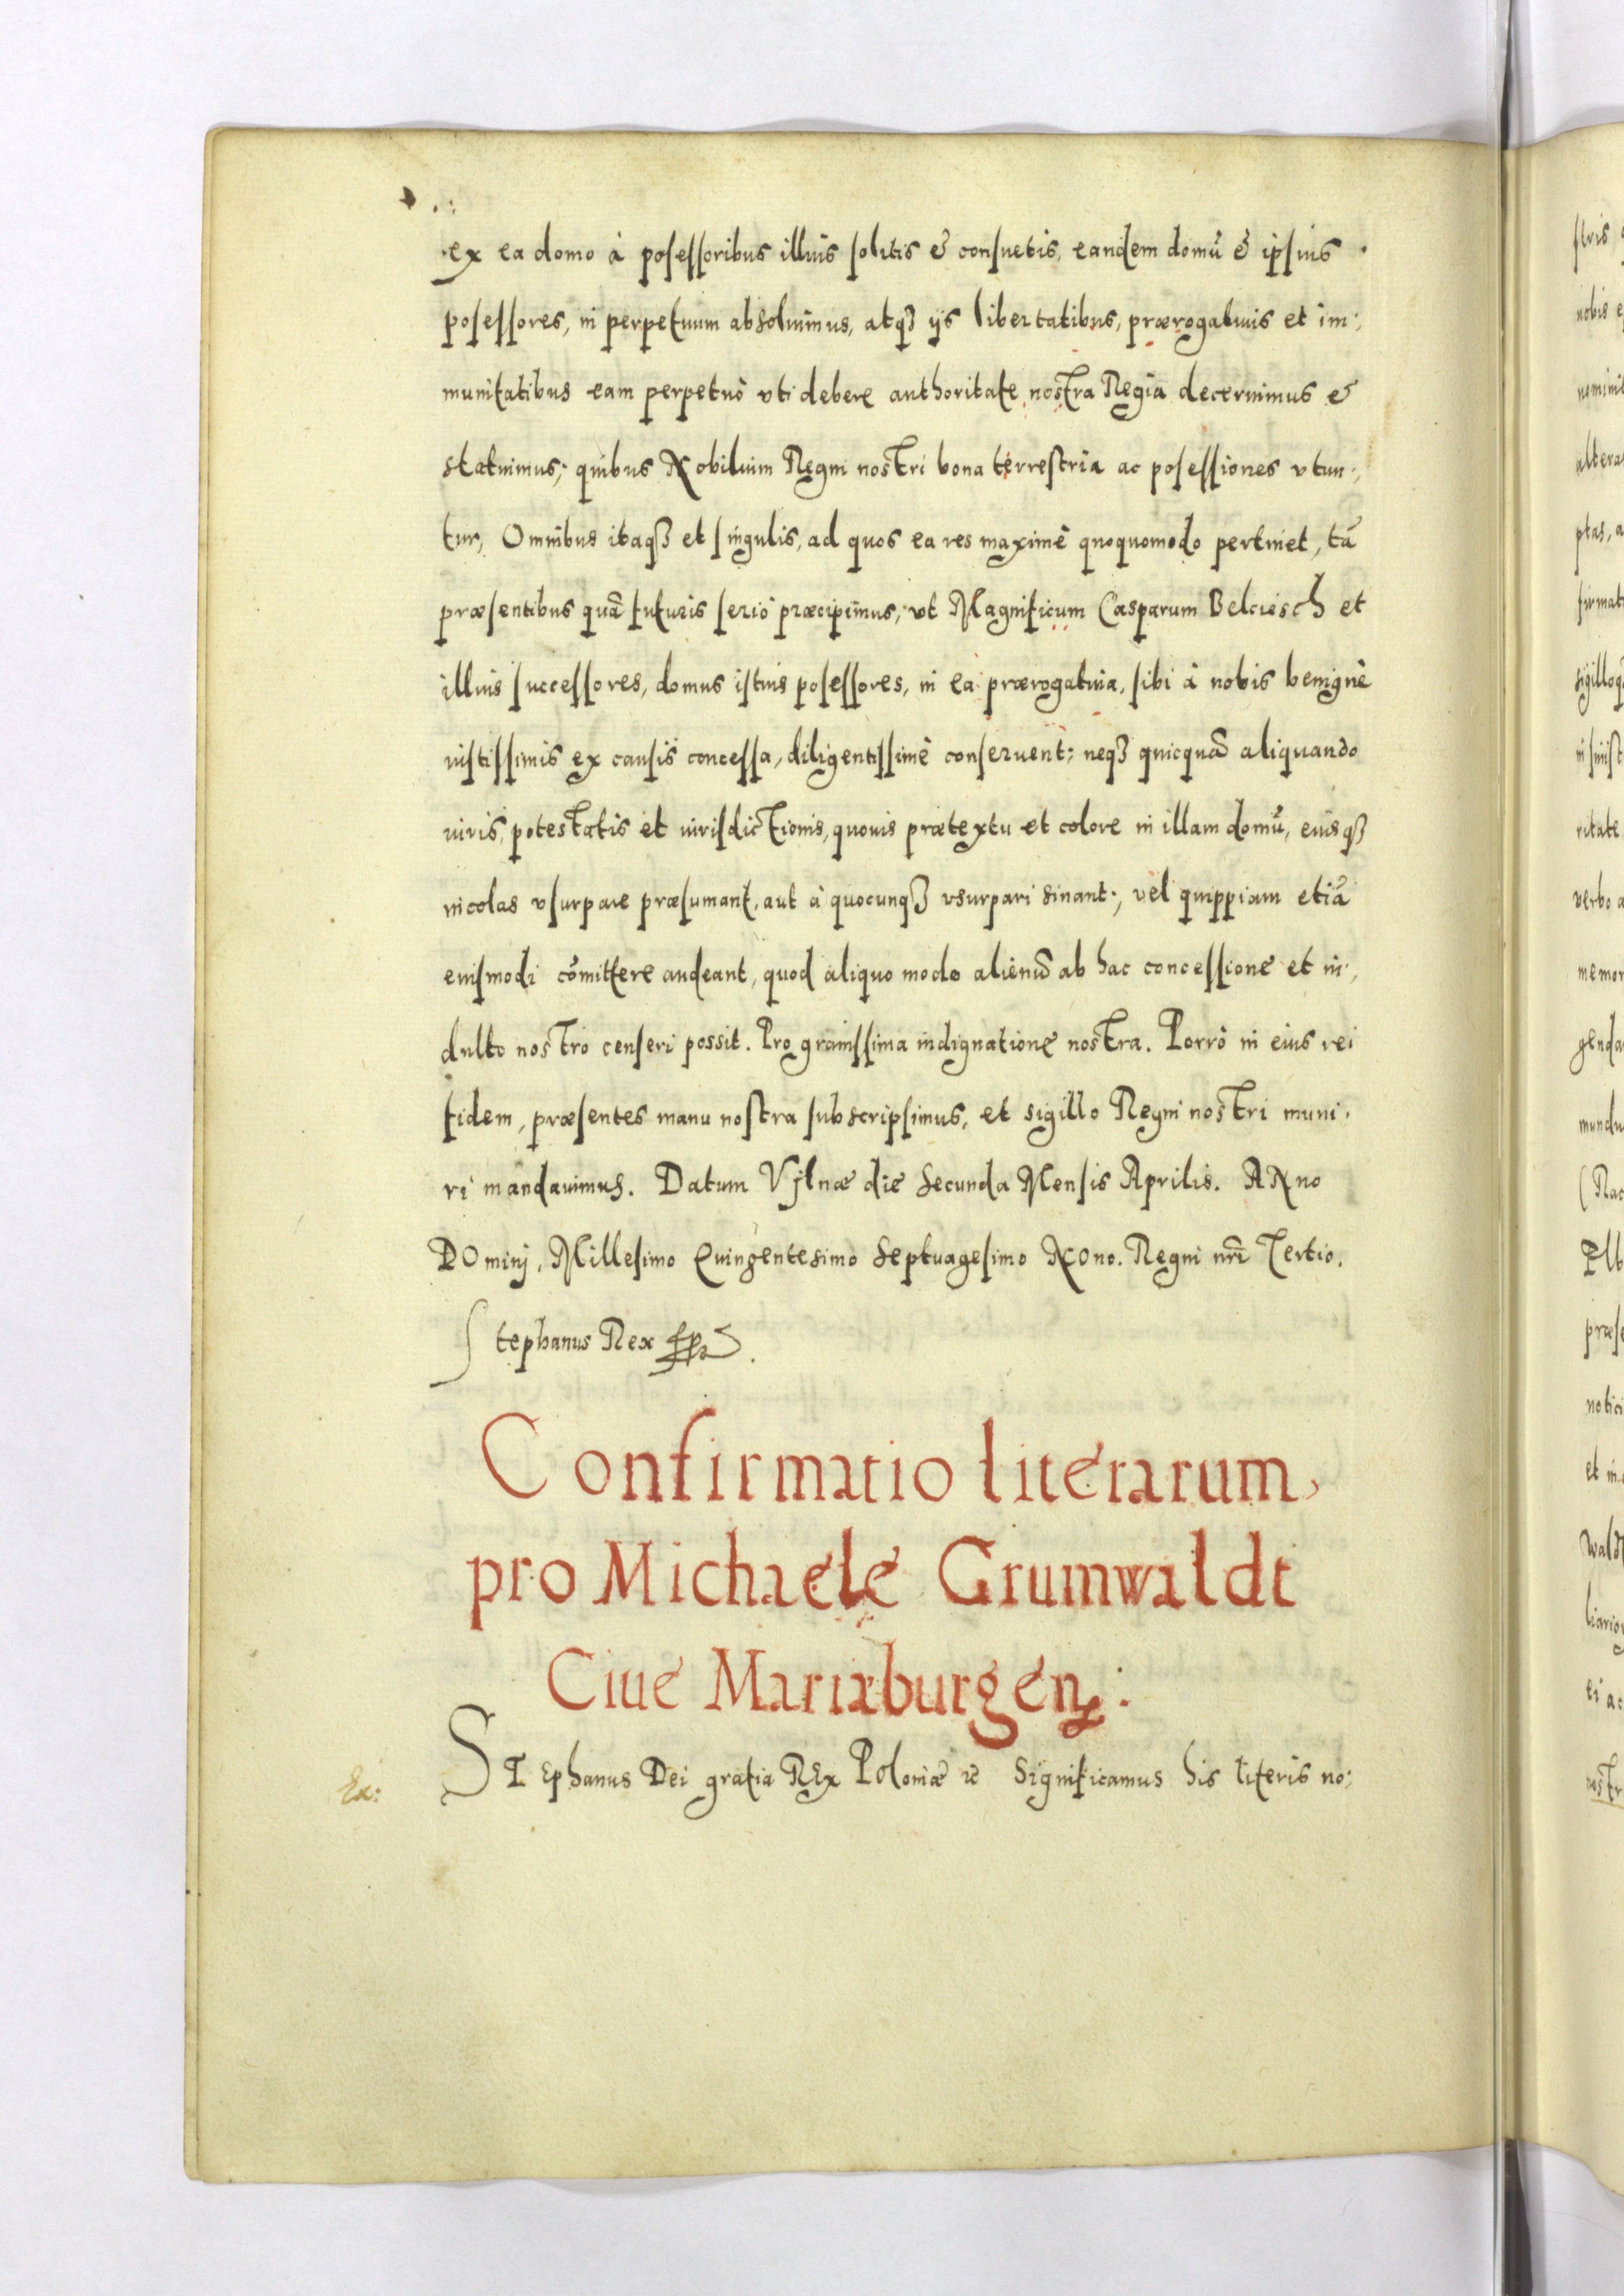 ex ea domo à posessoribus illius solitis & consuetis, eandem domū & ipsius
posessores, in perpetuum absoluimus, atqȝ ijs libertatibus, prærogatiuis et im:
munitatibus eam perpetuò vti debere authoritate nostra Regia decernimus &
statuimus; quibus Nobilium Regni nostri bona terrestria ac posessiones vtun:
tur, Omnibus itaqȝ et singulis, ad quos ea res maximè quoquomodo pertinet, tā
præsentibus quā futuris seriò præcipimus, vt Magnificum Casparum Belciesch et
illius successores, domus istius posessores, in ea prærogatiua, sibi à nobis benignè
iustissimis ex causis concessa, diligentissimè conseruent; neqȝ quicquā aliquando
iuris, potestatis et iurisdictionis, quouis prætextu et colore in illam domū, eiusqȝ
incolas vsurpare præsumant, aut à quocunqȝ vsurpari sinant; vel quippiam etiā
eiusmodi cōmittere audeant, quod aliquo modo alienū ab hac concessione et in:
dulto nostro censeri possit. Pro grauissima indignatione nostra. Porrò in eius rei
fidem, præsentes manu nostra subscripsimus, et sigillo Regni nostri muni:
ri mandauimus. Datum Vjlnæ die Secunda Mensis Aprilis. ANno
DOminj, Millesimo Quingentesimo Septuagesimo NOno. Regni nr̄i Tertio.
Stephanus Rex
Confirmatio literarum,
pro Michaele Grumwaldt
Ciue Mariæburgen:
STEphanus Dei gratia REx Poloniæ &c Significamus his literis no:
Ex: